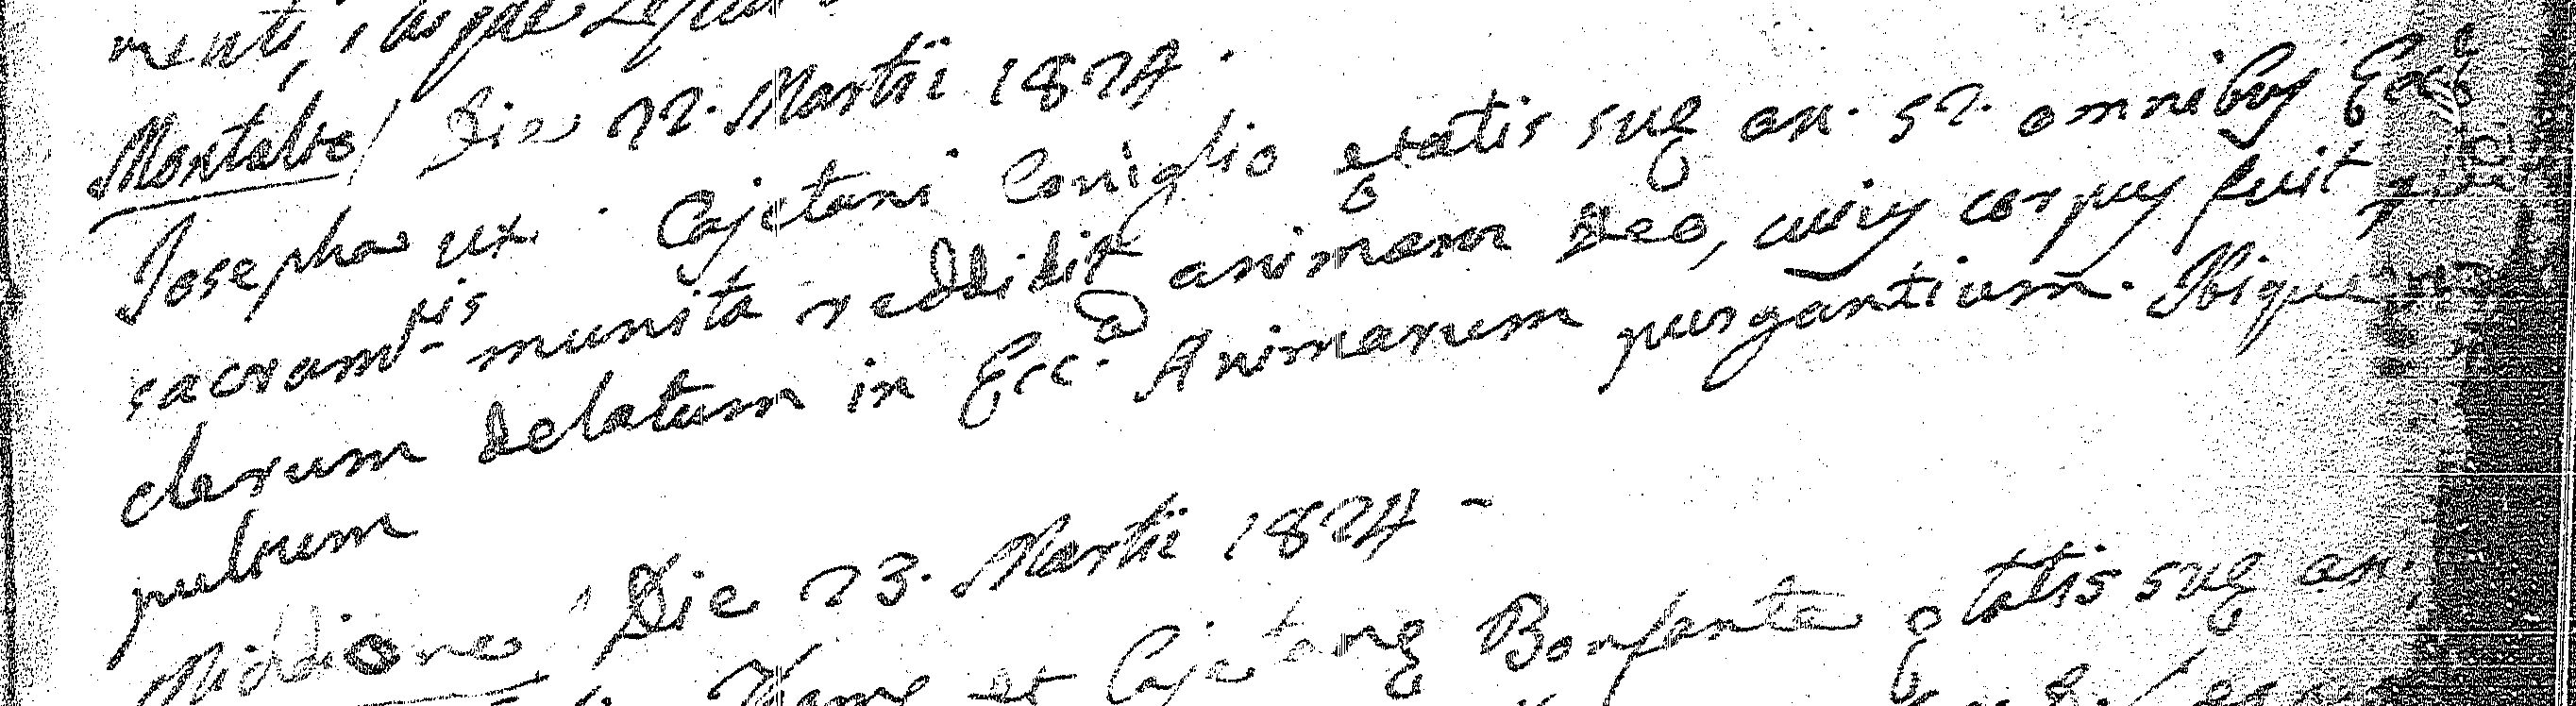 menti,
Montalto / Die 22. Martii 1824.
Josepha ux. Cajetani Coniglio ętatis suę an. 52. omnibus Eccę
sacramtis munita reddidit animam Deo, cuius corpus fuit per
clerum delatum in Ecc.a Animarum purgantium. Ibique
pultum
Die 23. Martii 1824 -
et Cajetanę Bonfante ętatis suę an.